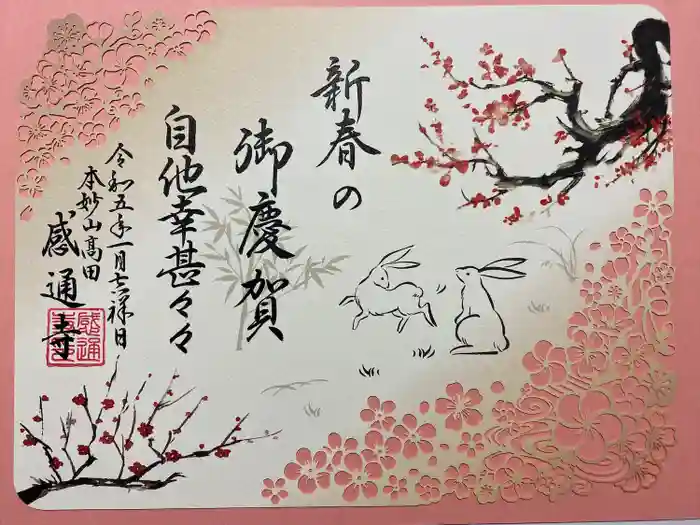 新春の
御慶賀
自他幸甚々々
令和五年一月吉祥日
本妙山髙田
感通寺